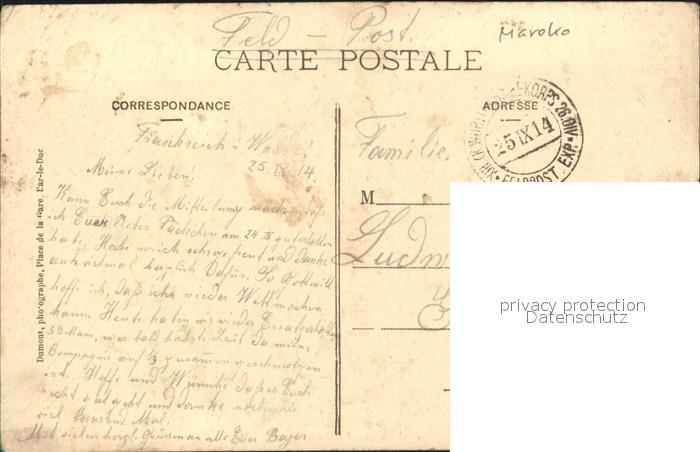 Feld – Post.
Maroko
CARTE POSTALE
CORRESPONDANCE
ADRESSE
Frankreich
25. IX 14
Meine Lieben!
Kann Euch die Mitteilung machen, daß
ich Euer liebes Päckchen am 24 IX gut erhalten
habe. Habe mich sehr gefreut und danke
auch vielmal herzlich dafür. So Gott will
hoffe ich, daß ich wieder Wett machen
kann. Heute haben wir wieder Ersatz erhalten
50 Mann, war bald höchste Zeit da meine
Compagnie auf 1/3 zusammengeschmolzen
ist. Hoffe und Wünsche daß es Euch
recht gut geht und danke nochmals
viel Tausend Mal.
Mit vielen herzl. Grüssen an alle Euer
Familie
M
Ludw
26. DIV.
25 IX 14
FELDPOST EXP.
XIII
Dumont, photographe, Place de la Gare, Bar-le-Duc
privacy protection
Datenschutz